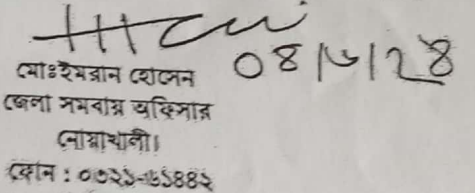 ০৪/৬/২৪
মোঃ ইমরান হোসেন
জেলা সমবায় অফিসার
নোয়াখালী।
ফোন : ০৩২১-৬১৪৪২